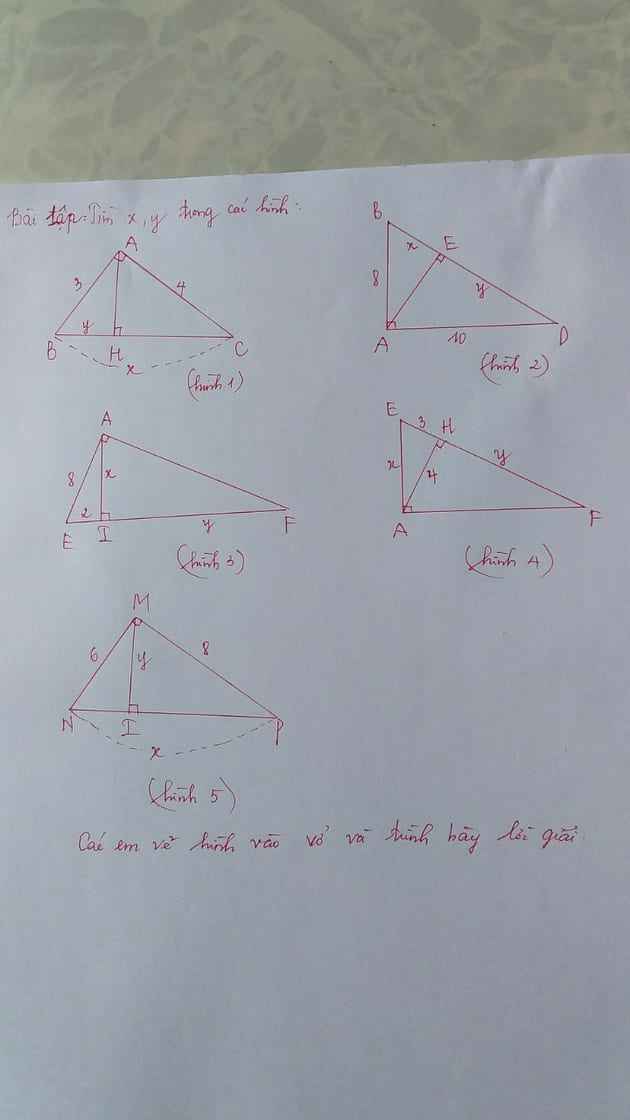 Bài tập: Tìm x, y trong các hình:
A
3
4
y
B
H
C
x
(hình 1)
B
x
E
8
y
A
10
D
(hình 2)
A
8
x
2
E
I
y
F
(hình 3)
E
3
H
x
4
y
A
F
(hình 4)
M
6
y
8
N
I
P
x
(hình 5)
Các em vẽ hình vào vở và trình bày lời giải.